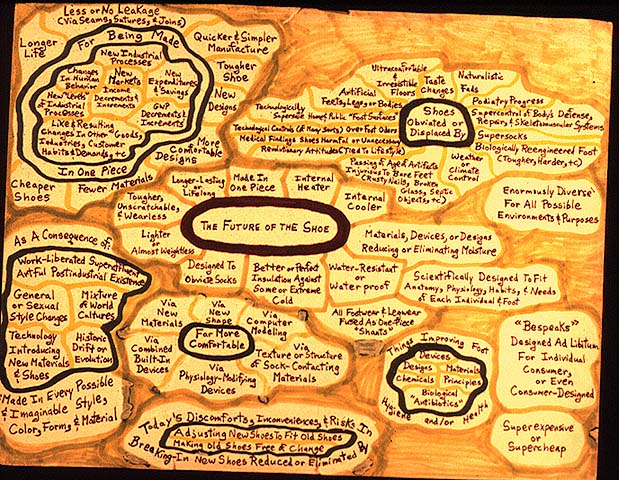 Less or No Leakage
(Via Seams, Sutures, & Joins)
Longer
Life
For Being Made
Quicker & Simpler
Manufacture
New Industrial
Processes
Changes
In Human
Behavior
New
Markets
Income
Decrements &
Increments
New
Expenditures
& Savings
Tougher
Shoe
New
Designs
of Industrial
Processes
GNP
Decrements &
Increments
Like & Resulting
Changes In Other Goods,
Industries, Customer
Habits & Demands, etc
More
Comfortable
Designs
In One Piece
Cheaper
Shoes
Fewer Materials
Ultracomfortable
&
Irresistible
Floors
Taste
Changes
Naturalistic
Fads
Artificial
Feets, Legs, or Bodies
Technologically
Supersafe Home & Public "Foot Surfaces"
Shoes
Obviated or
Displaced By
Podiatry Progress
Supercontrol of Body's Defense,
Repair, & Skeletomuscular Systems
Technological Controls (of Many Sorts) Over Foot Odors
Medical Findings Shoes Harmful or Unnecessary
Revolutionary Attitudes (Tied To Lifestyle)
Supersocks
Biologically Reengineered Foot
(Tougher, Harder, etc)
Passing of Aged Artifacts
Injurious To Bare Feet
(Rusty Nails, Broken
Glass, Septic
Objects, etc)
Weather
or
Climate
Control
Longer-Lasting or
Lifelong
Made In
One Piece
Internal
Heater
Internal
Cooler
Enormously Diverse
For All Possible
Environments & Purposes
Tougher,
Unscratchable,
& Wearless
The Future of the Shoe
Lighter
or
Almost Weightless
Materials, Devices, or Designs
Reducing or Eliminating Moisture
Designed To
Obviate Socks
Better or Perfect
Insulation Against
Some or Extreme
Cold
Water-Resistant
or
Waterproof
Scientifically Designed To Fit
Anatomy, Physiology, Habits, & Needs
of Each Individual & Foot
As A Consequence of:
Work-Liberated Superaffluent
Artful Postindustrial Existence
General
or Sexual
Style Changes
Mixture
of World
Cultures
Technology
Introducing
New Materials
& Shoes
Historic
Drift or
Evolution
Made In Every Possible
& Imaginable Style,
Color, Form, & Material
Via
New
Materials
Via
New
Shape
Via
Computer
Modeling
Far More
Comfortable
Via
Combined
Built-In
Devices
Via
Physiology-Modifying
Devices
Via
Texture or Structure
of Sock-Contacting
Materials
All Footwear & Legwear
Fused As One-Piece
"Shoants"
Things Improving Foot
Devices
Designs
Materials
Chemicals
Principles
Biological
"Antibiotics"
Hygiene and/or Health
"Bespeaks"
Designed Ad Libitum
For Individual
Consumer,
or Even
Consumer-Designed
Superexpensive
or
Supercheap
Today's Discomforts, Inconveniences, & Risks In
Adjusting New Shoes To Fit Old Shoes
Making Old Shoes Free & Change
Breaking-In New Shoes Reduced or Eliminated By